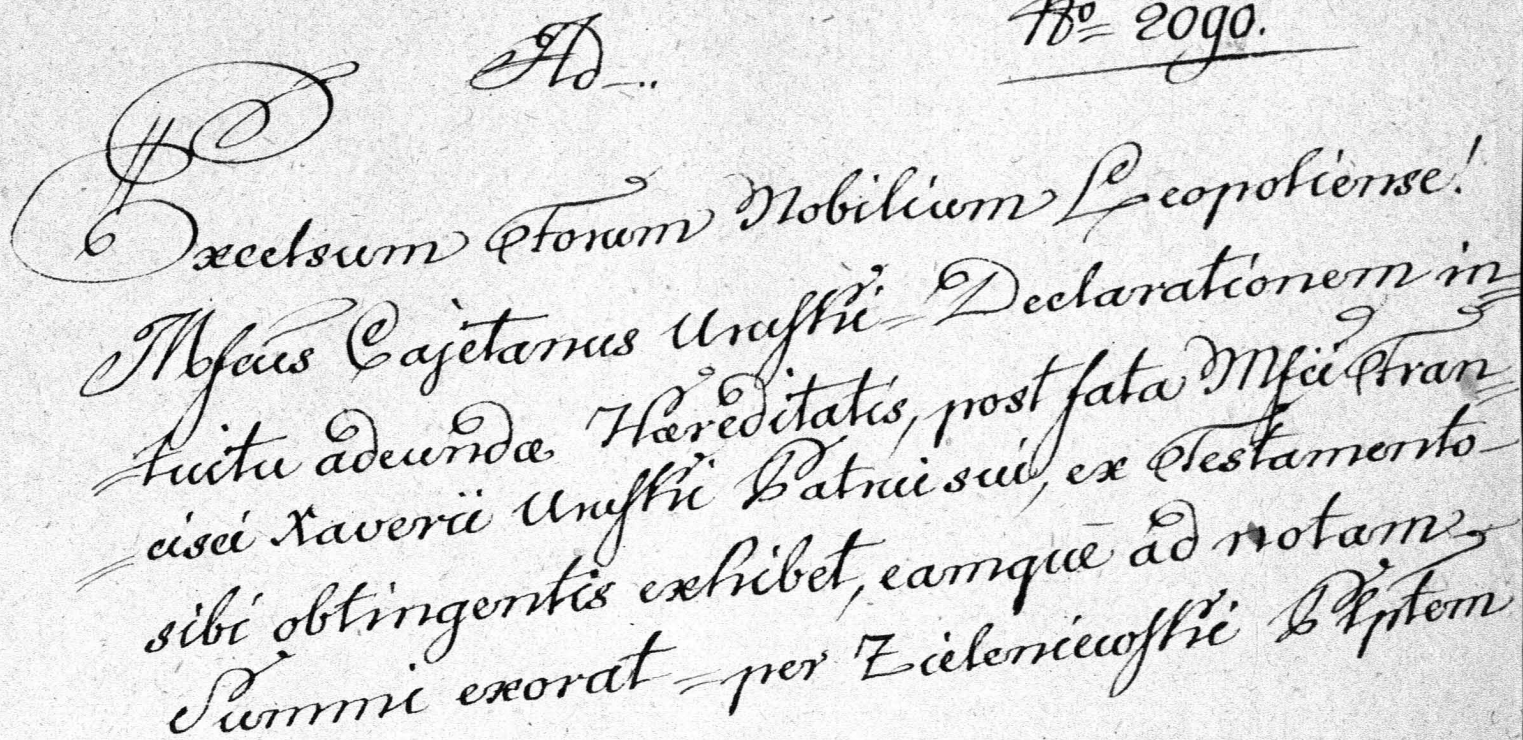 Ad
No 2090.
Excelsum Forum Nobilium Leopoliense!
Mfcus Cajetanus Uruski Declarationem in=
=tuitu adeundæ Hæreditatis, post fata Mfci Fran=
=cisci Xaverii Uruski Patrui sui, ex Testamento
sibi obtingentis exhibet, eamque ad notam
Summi exorat = per Zieleniewski Plptem